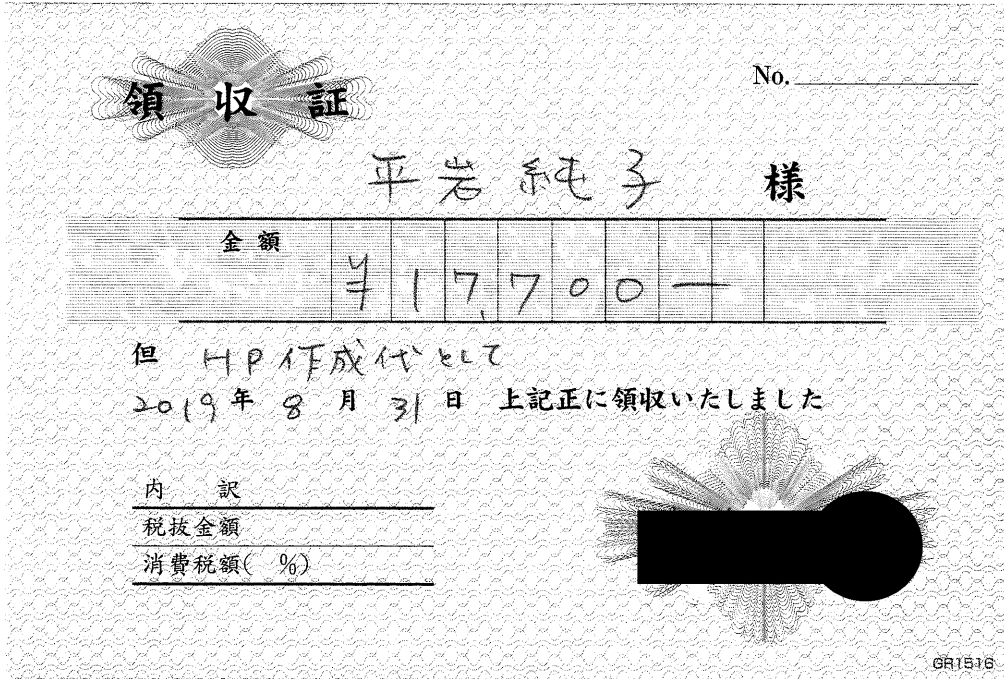 領収証
No.
平岩純子 様
金額 ¥17,700―
但 HP作成代として
2019年8月31日 上記正に領収いたしました
内訳
税抜金額
消費税額( %)
GR1516